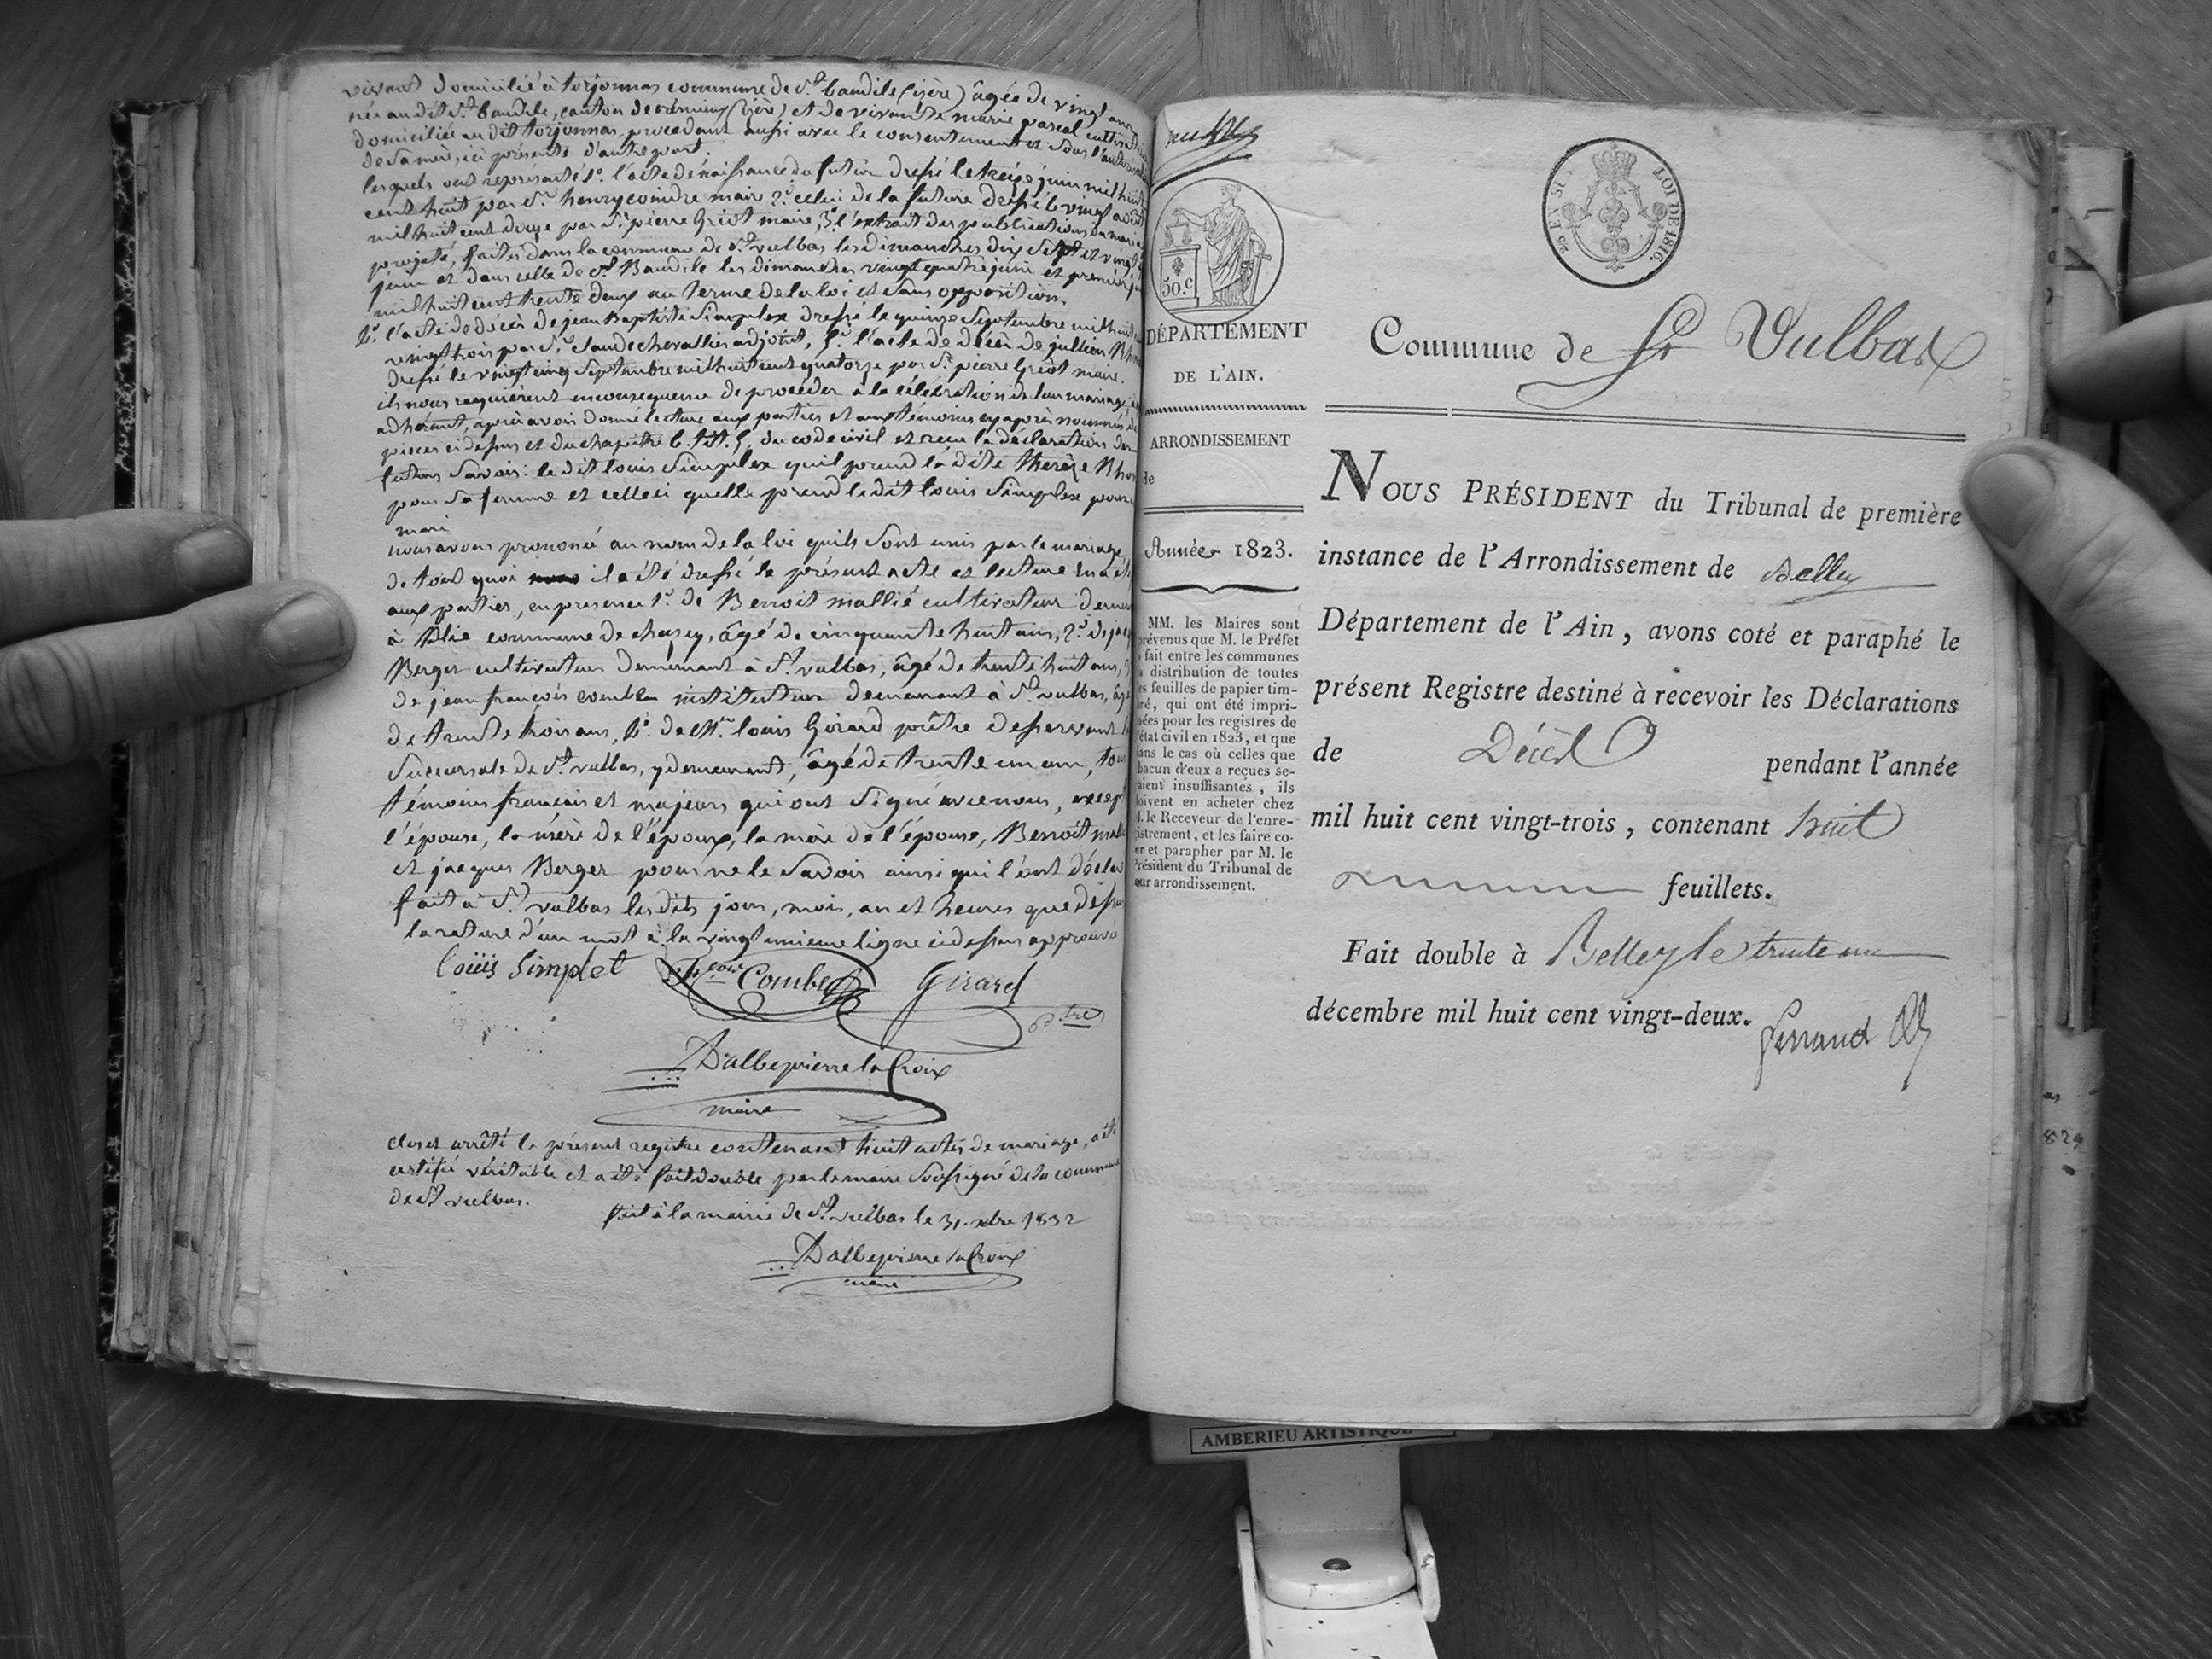 vivant domicilié à torjonnas commune de St. baudile (isère) âgée de vingt ans
née au dit St. baudile, canton de crémieux (isère) et de vivante marie pascal
domiciliée au dit torjonnas, procédant aussi avec le consentement et sous
de sa mère, ici présente d'autre part.
lesquels ont représenté 1°. l'acte de naissance du futur dressé le treize juin mil huit
cent huit par Sr. henry coindre maire 2°. celui de la future dressé le vingt août
mil huit cent douze par Sr. pierre Griot maire, 3°. l'extrait des publications du mariage
projeté, faites dans la commune de St. vulbas les dimanches dix sept et vingt
juin et dans celle de St. Baudile les dimanches vingt quatre juin et premier
mil huit cent trente deux au terme de la loi et sans opposition.
4°. l'acte de décès de jean Baptiste Simplex dressé le quinze Septembre mil huit
vingt trois par Sr. Claude chevallier adjoint, 5°. l'acte de décès de jullien
dressé le vingt cinq Septembre mil huit cent quatorze par Sr. pierre Griot maire.
ils nous requièrent en conséquence de procéder à la célébration de leur mariage
adhérant, après avoir donné lecture aux parties et aux témoins cy après nommés
pièces ci dessus et du chapitre 6. tit. 5. du code civil et reçu la déclaration des
futurs Savoir: le dit louis Simplex qu'il prend la dite therèze
pour Sa femme et celle ci quelle prend le dit louis Simplex pour
mari
nous avons prononcé au nom de la loi quils Sont unis par le mariage,
de tout quoi il a été dressé le présent acte et lecture
aux parties, en présence 1°. de Benoit mallié cultivateur
à blie commune de chazey, âgé de cinquante huit ans, 2°. de
Berger cultivateur demeurant à St. vulbas, âgé de trente huit ans,
de jean françois combe institeteur demeurant à St. vulbas,
de trente trois ans, 4°. de Mre. louis Girard prêtre desservant
Succursale de St. vulbas, y demeurant, âgé de trente un ans,
témoins français et majeurs qui ont Signé avec nous, excepté
l'épouse, la mère de l'époux, la mère de l'épouse, Benoit
et jacques Berger pour ne le Savoir ainsi qu'il l'ont
fait à St. vulbas les dits jour, mois, an et heures que
la rature d'un mot à la vingt unieme ligne ci dessus approuvée
loüis Simplet Combe Girard
ptre
Dallepierre la Croix
maire
clos et arrêté le présent registre contenant huit actes de mariage, a été
certifié véritable et a été fait double par le maire Soussigné de la commune
de St. vulbas.
fait à la mairie de St. vulbas le 31 xbre 1832
Dallepierre la Croix
maire
EN SUS
LOI DE 1816.
50.c
Commune de St Vulbas
DÉPARTEMENT
DE L'AIN.
ARRONDISSEMENT
de
Année 1823.
MM. les Maires sont
prévenus que M. le Préfet
a fait entre les communes
la distribution de toutes
les feuilles de papier tim-
bré, qui ont été impri-
mées pour les registres de
l'état civil en 1823, et que
dans le cas où celles que
chacun d'eux a reçues se-
raient insuffisantes, ils
doivent en acheter chez
M. le Receveur de l'enre-
gistrement, et les faire co-
ter et parapher par M. le
Président du Tribunal de
leur arrondissement.
NOUS PRÉSIDENT du Tribunal de première
instance de l'Arrondissement de Belley
Département de l'Ain, avons coté et paraphé le
présent Registre destiné à recevoir les Déclarations
de Décès pendant l'année
mil huit cent vingt-trois, contenant huit
feuillets.
Fait double à Belley le trente un
décembre mil huit cent vingt-deux.
Ferrand
AMBERIEU ARTISTIQUE